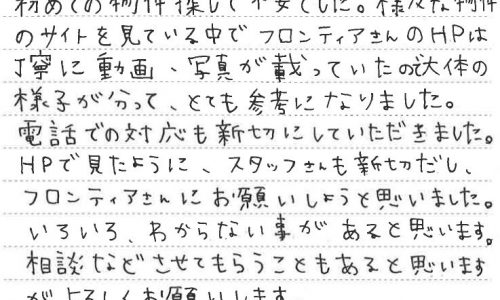 初めての物件探しで不安でした。様々な物件
のサイトを見ている中でフロンティアさんのHPは
丁寧に動画、写真が載っていたの大体の
様子が分って、とても参考になりました。
電話での対応も新切にしていただきました。
HPで見たように、スタッフさんも新切だし、
フロンティアさんにお願いしようと思いました。
いろいろ、わからない事があると思います。
相談などさせてもらうこともあると思います
がよろしくお願いします。